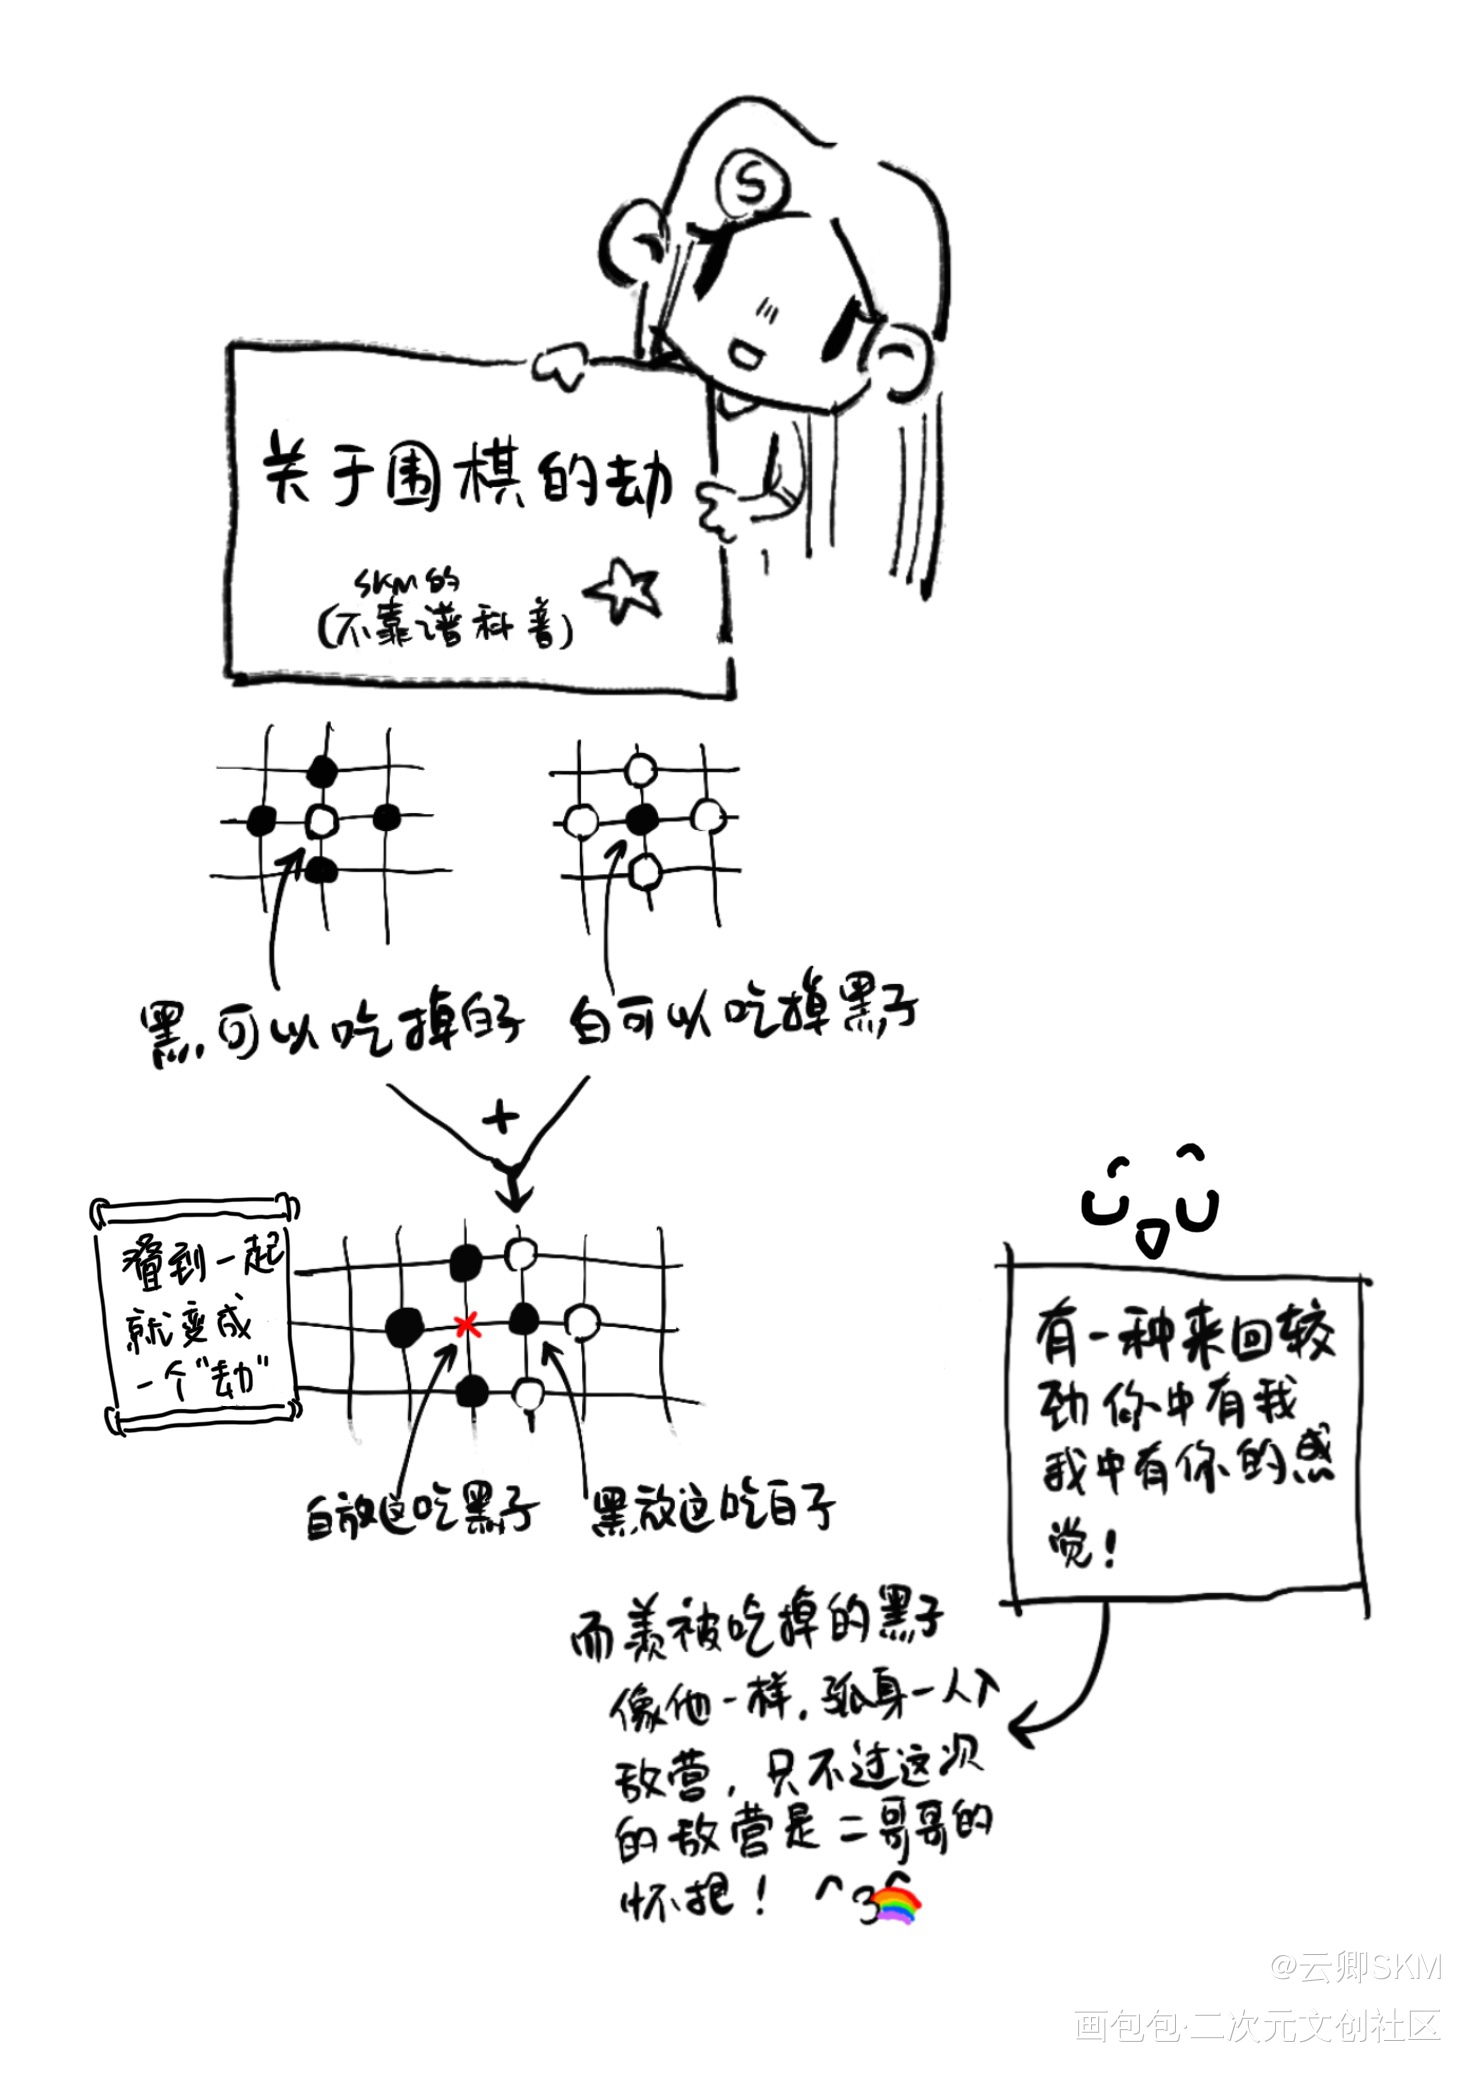 S
关于围棋的劫
SKM的
(不靠谱科普)
黑可以吃掉白子
白可以吃掉黑子
+
叠到一起
就变成
一个“劫”
白放这吃黑子
黑放这吃白子
有一种来回较
劲你中有我
我中有你的感
觉!
而羡被吃掉的黑子
像他一样,孤身一人入
敌营,只不过这次
的敌营是二哥哥的
怀抱! ^3^
@云卿SKM
画包包·二次元文创社区